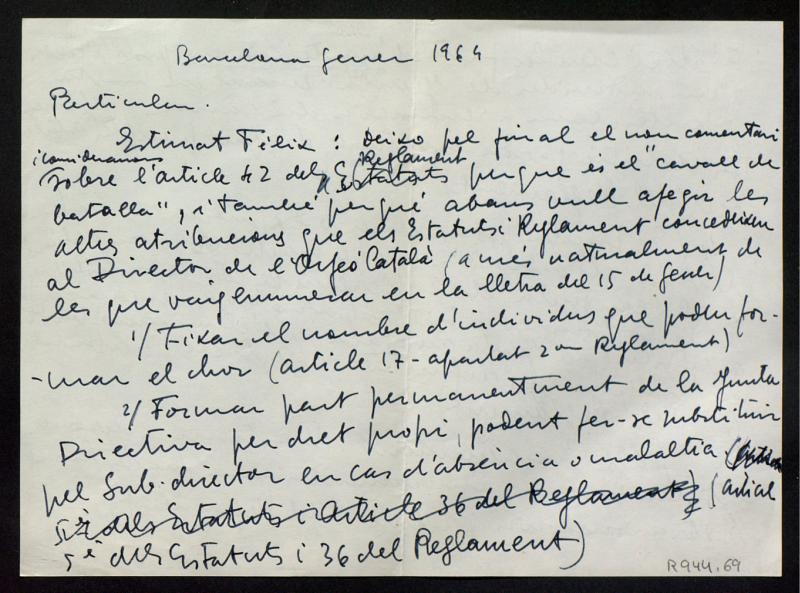 Barcelona gener 1964
Particular.
Estimat Fèlix : Deixo pel final el non comentari
i consideracions
sobre l'article 42 del Reglament perquè és el "cavall de
batalla", i també perquè abans vull afegir les
altres atribucions que els Estatuts i Reglament concedeixen
al Director de l'Orfeó Català (a més naturalment de
les que vaig enumerar en la lletra del 15 de gener)
1/ Fixar el nombre d'individus que poden for-
-mar el chor (article 17 - apartat 2on Reglament)
2/ Formar part permanentment de la Junta
Directiva per dret propi, podent fer-se substituir
pel Sub-director en cas d'absència o malaltia
5è dels Estatuts i Article 36 del Reglament) (article
5è dels Estatuts i 36 del Reglament)
R944.69